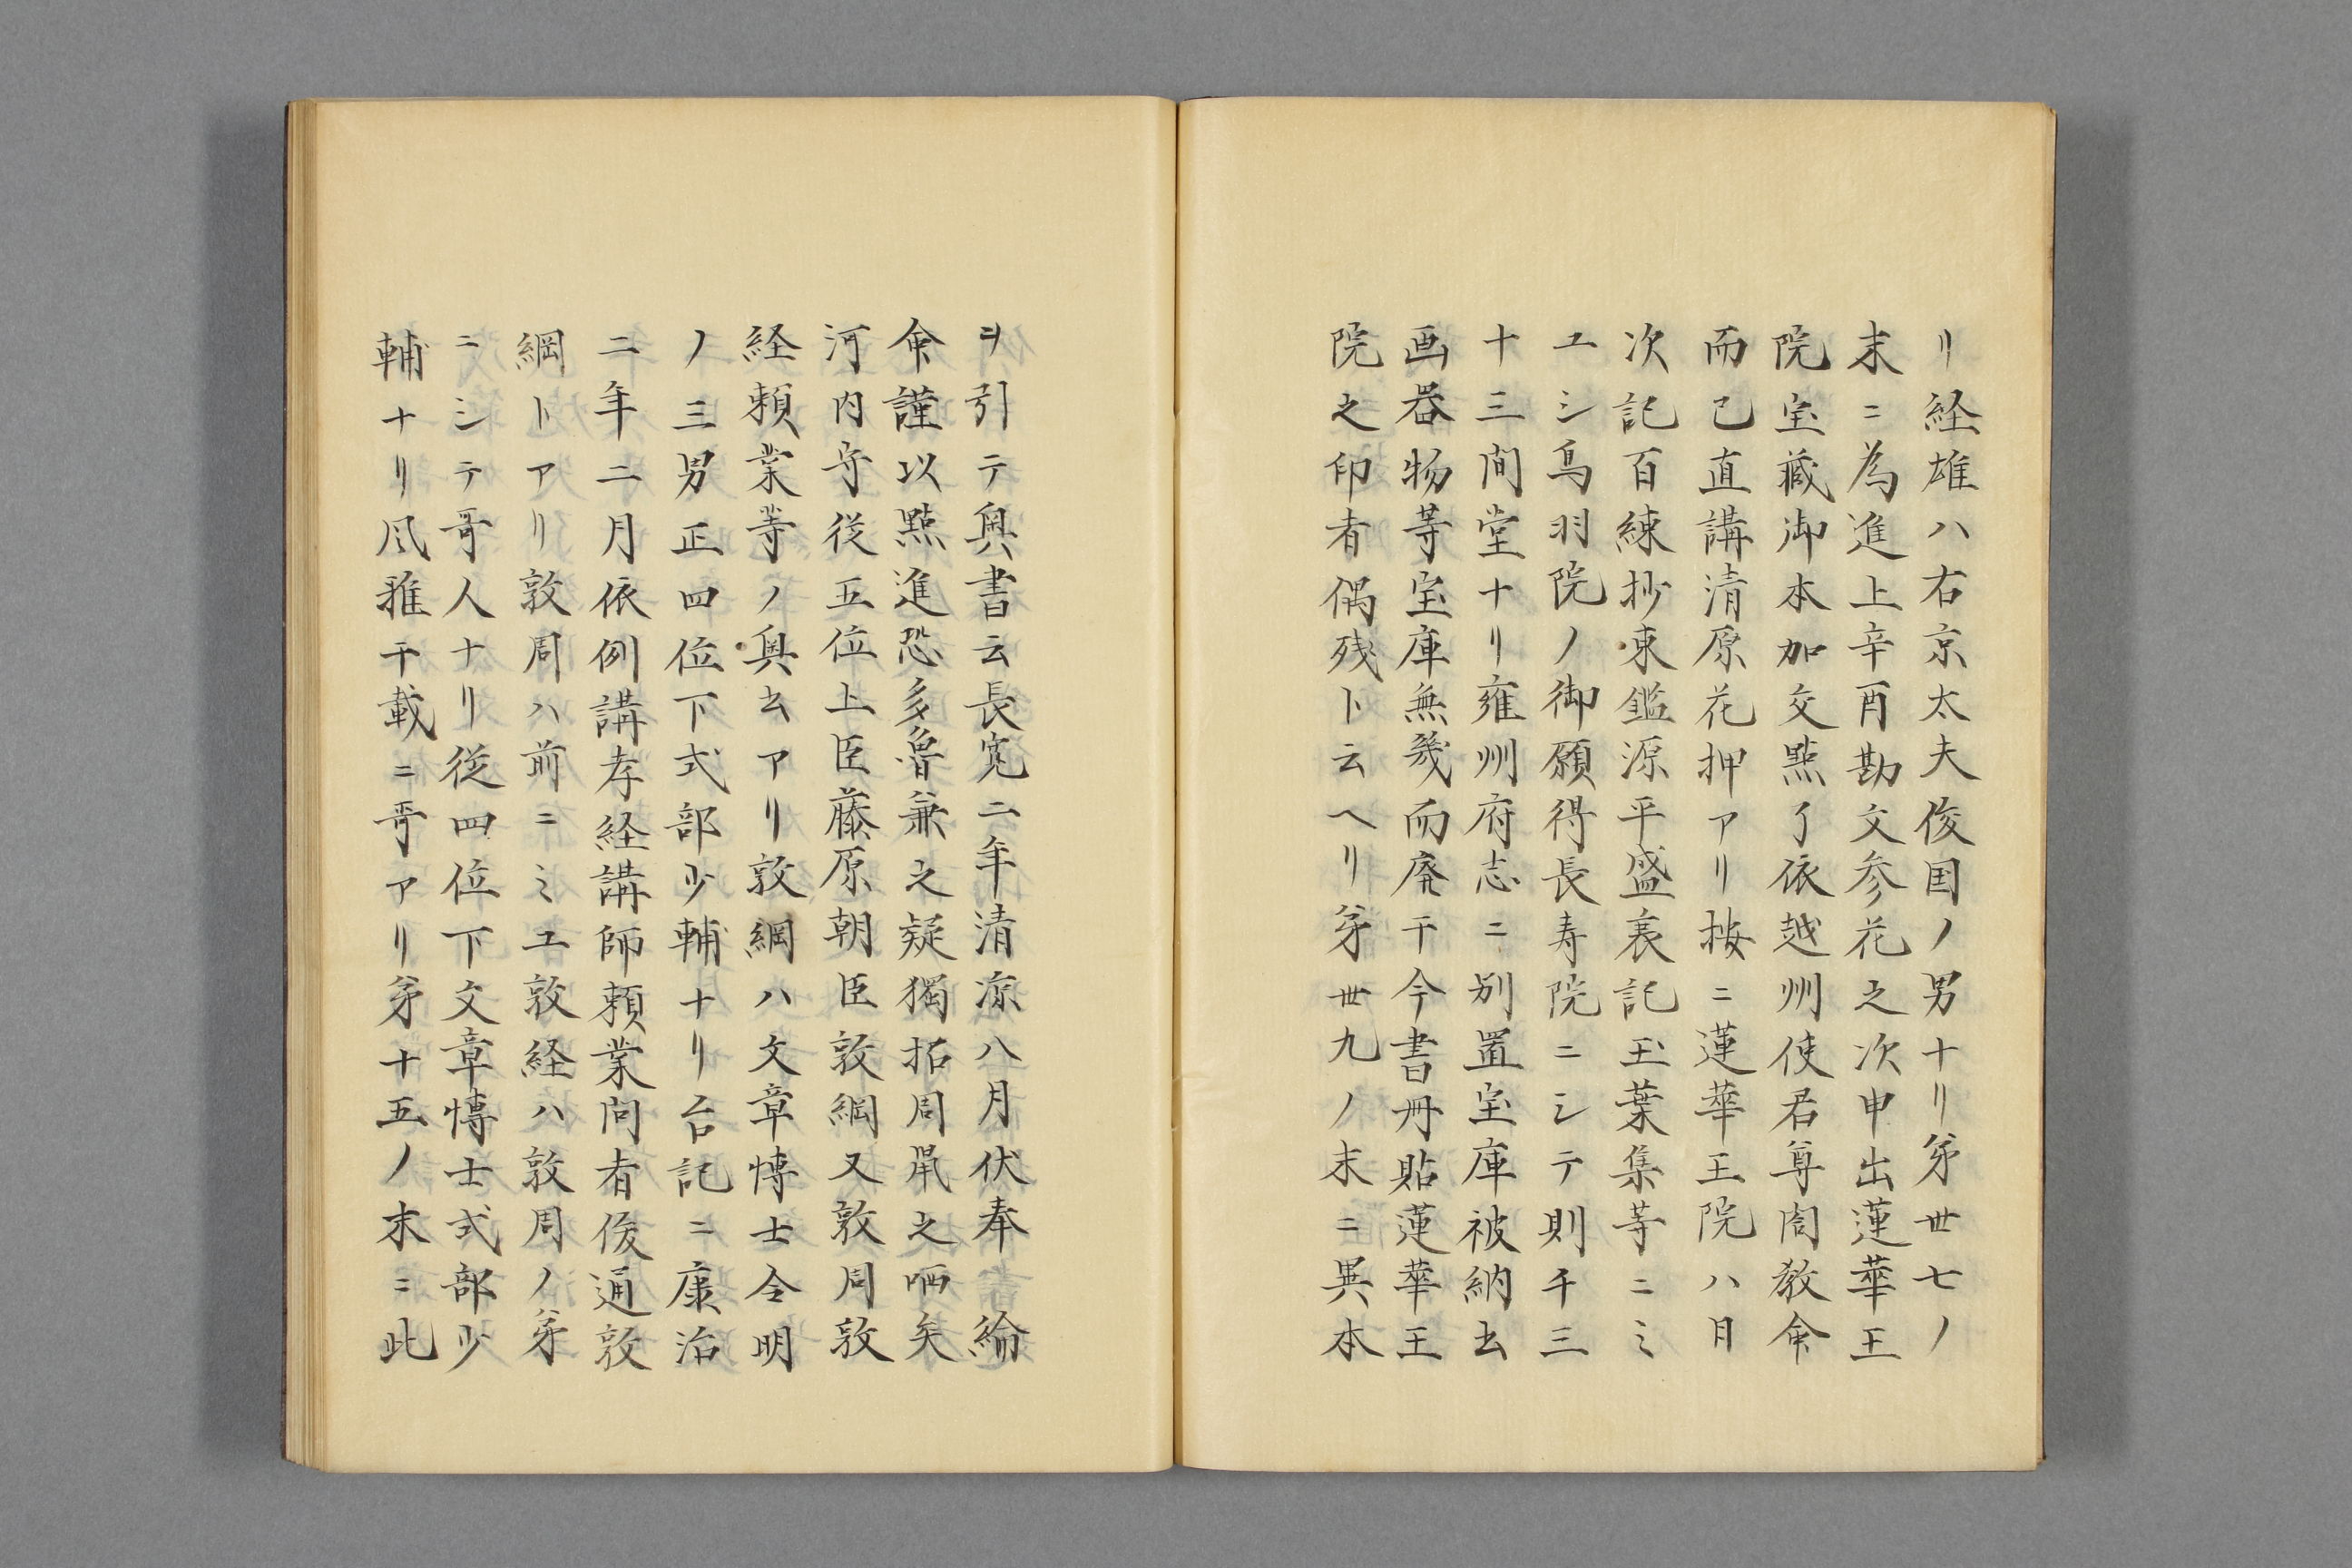 リ経雄ハ右京太夫俊国ノ男ナリ㐧丗七ノ
末ニ為進上辛酉勘文参花之次申出蓮華王
院宝蔵御本加交點了依越州使君尊閤教命
而已直講清原花押アリ按ニ蓮華王院ハ月
次記百練抄東鑑源平盛衰記玉葉集等ニミ
エシ鳥羽院ノ御願得長寿院ニシテ則千三
十三間堂ナリ雍州府志ニ別置宝庫被納玄
画器物等宝庫無幾而廃干今書冊貼蓮華王
院之印者偶残ト云ヘリ㐧丗九ノ末ニ異本
ヲ引テ奥書云長寛二年清涼八月伏奉 綸
命謹以點進恐多魯兼之疑獨拓周鼡之哂矣
河内守従五位上臣藤原朝臣敦綱又敦周敦
経頼業等ノ奥玄アリ敦綱ハ文章博士令明
ノ三男正四位下式部少輔ナリ台記ニ康治
二年二月依例講孝経講師頼業問者俊通敦
綱トアリ敦周ハ前ニミエ敦経ハ敦周ノ㐧
ニシテ哥人ナリ従四位下文章博士式部少
輔ナリ風雅千載ニ哥アリ㐧十五ノ末ニ此